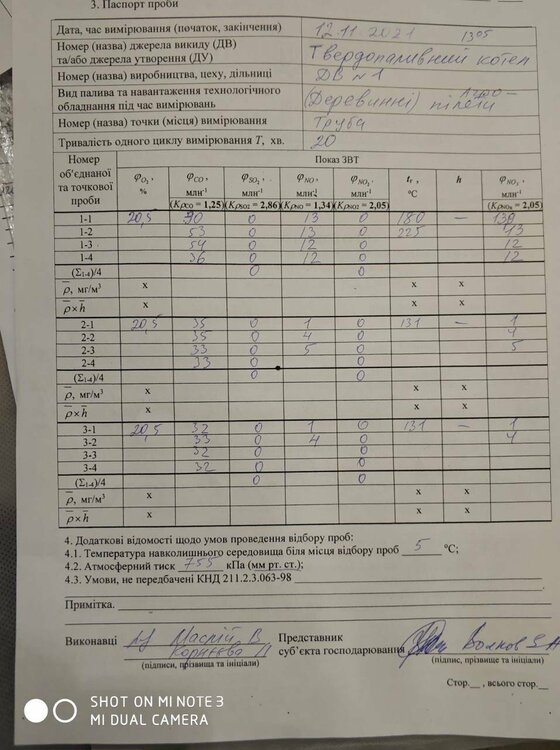 3. Паспорт проби
Дата, час вимірювання (початок, закінчення) 12.11.2021 1305
Номер (назва) джерела викиду (ДВ) та/або джерела утворення (ДУ) Твердопаливний котел
Номер (назва) виробництва, цеху, дільниці ДВ №1
Вид палива та навантаження технологічного обладнання під час вимірювань (Деревинні) пілети
Номер (назва) точки (місця) вимірювання Труба
Тривалість одного циклу вимірювання T, хв. 20
Номер об'єднаної та точкової проби Показ ЗВТ
φO2, % φCO, млн-1 φSO2, млн-1 φNO, млн-1 φNO2, млн-1 tг, °C h φNOx, млн-1
(KρCO = 1,25) (KρSO2 = 2,86) (KρNO = 1,34) (KρNO2 = 2,05) (KρNOx = 2,05)
1-1 20,5 90 0 13 0 180 —
1-2 53 0 13 0 225 13
1-3 54 0 12 0 12
1-4 36 0 12 0 12
(Σ1-4)/4 0 0
ρ, мг/м³ x x x
ρ×h x x x
2-1 20,5 35 0 1 0 131 — 1
2-2 35 0 4 0 4
2-3 33 0 5 0 5
2-4 33 0 0
(Σ1-4)/4 0 0
ρ, мг/м³ x x x
ρ×h x x x
3-1 20,5 32 0 1 0 131 — 1
3-2 33 0 4 0 4
3-3 32 0 0
3-4 32 0 0
(Σ1-4)/4 0 0
ρ, мг/м³ x x x
ρ×h x x x
4. Додаткові відомості щодо умов проведення відбору проб:
4.1. Температура навколишнього середовища біля місця відбору проб 5 °C;
4.2. Атмосферний тиск 755 кПа (мм рт. ст.);
4.3. Умови, не передбачені КНД 211.2.3.063-98
Примітка.
Виконавці Маслій В Представник
Корнєєва Л суб'єкта господарювання Волков
(підписи, прізвища та ініціали) (підпис, прізвище та ініціали)
Стор.__, всього стор.__
SHOT ON MI NOTE 3
MI DUAL CAMERA